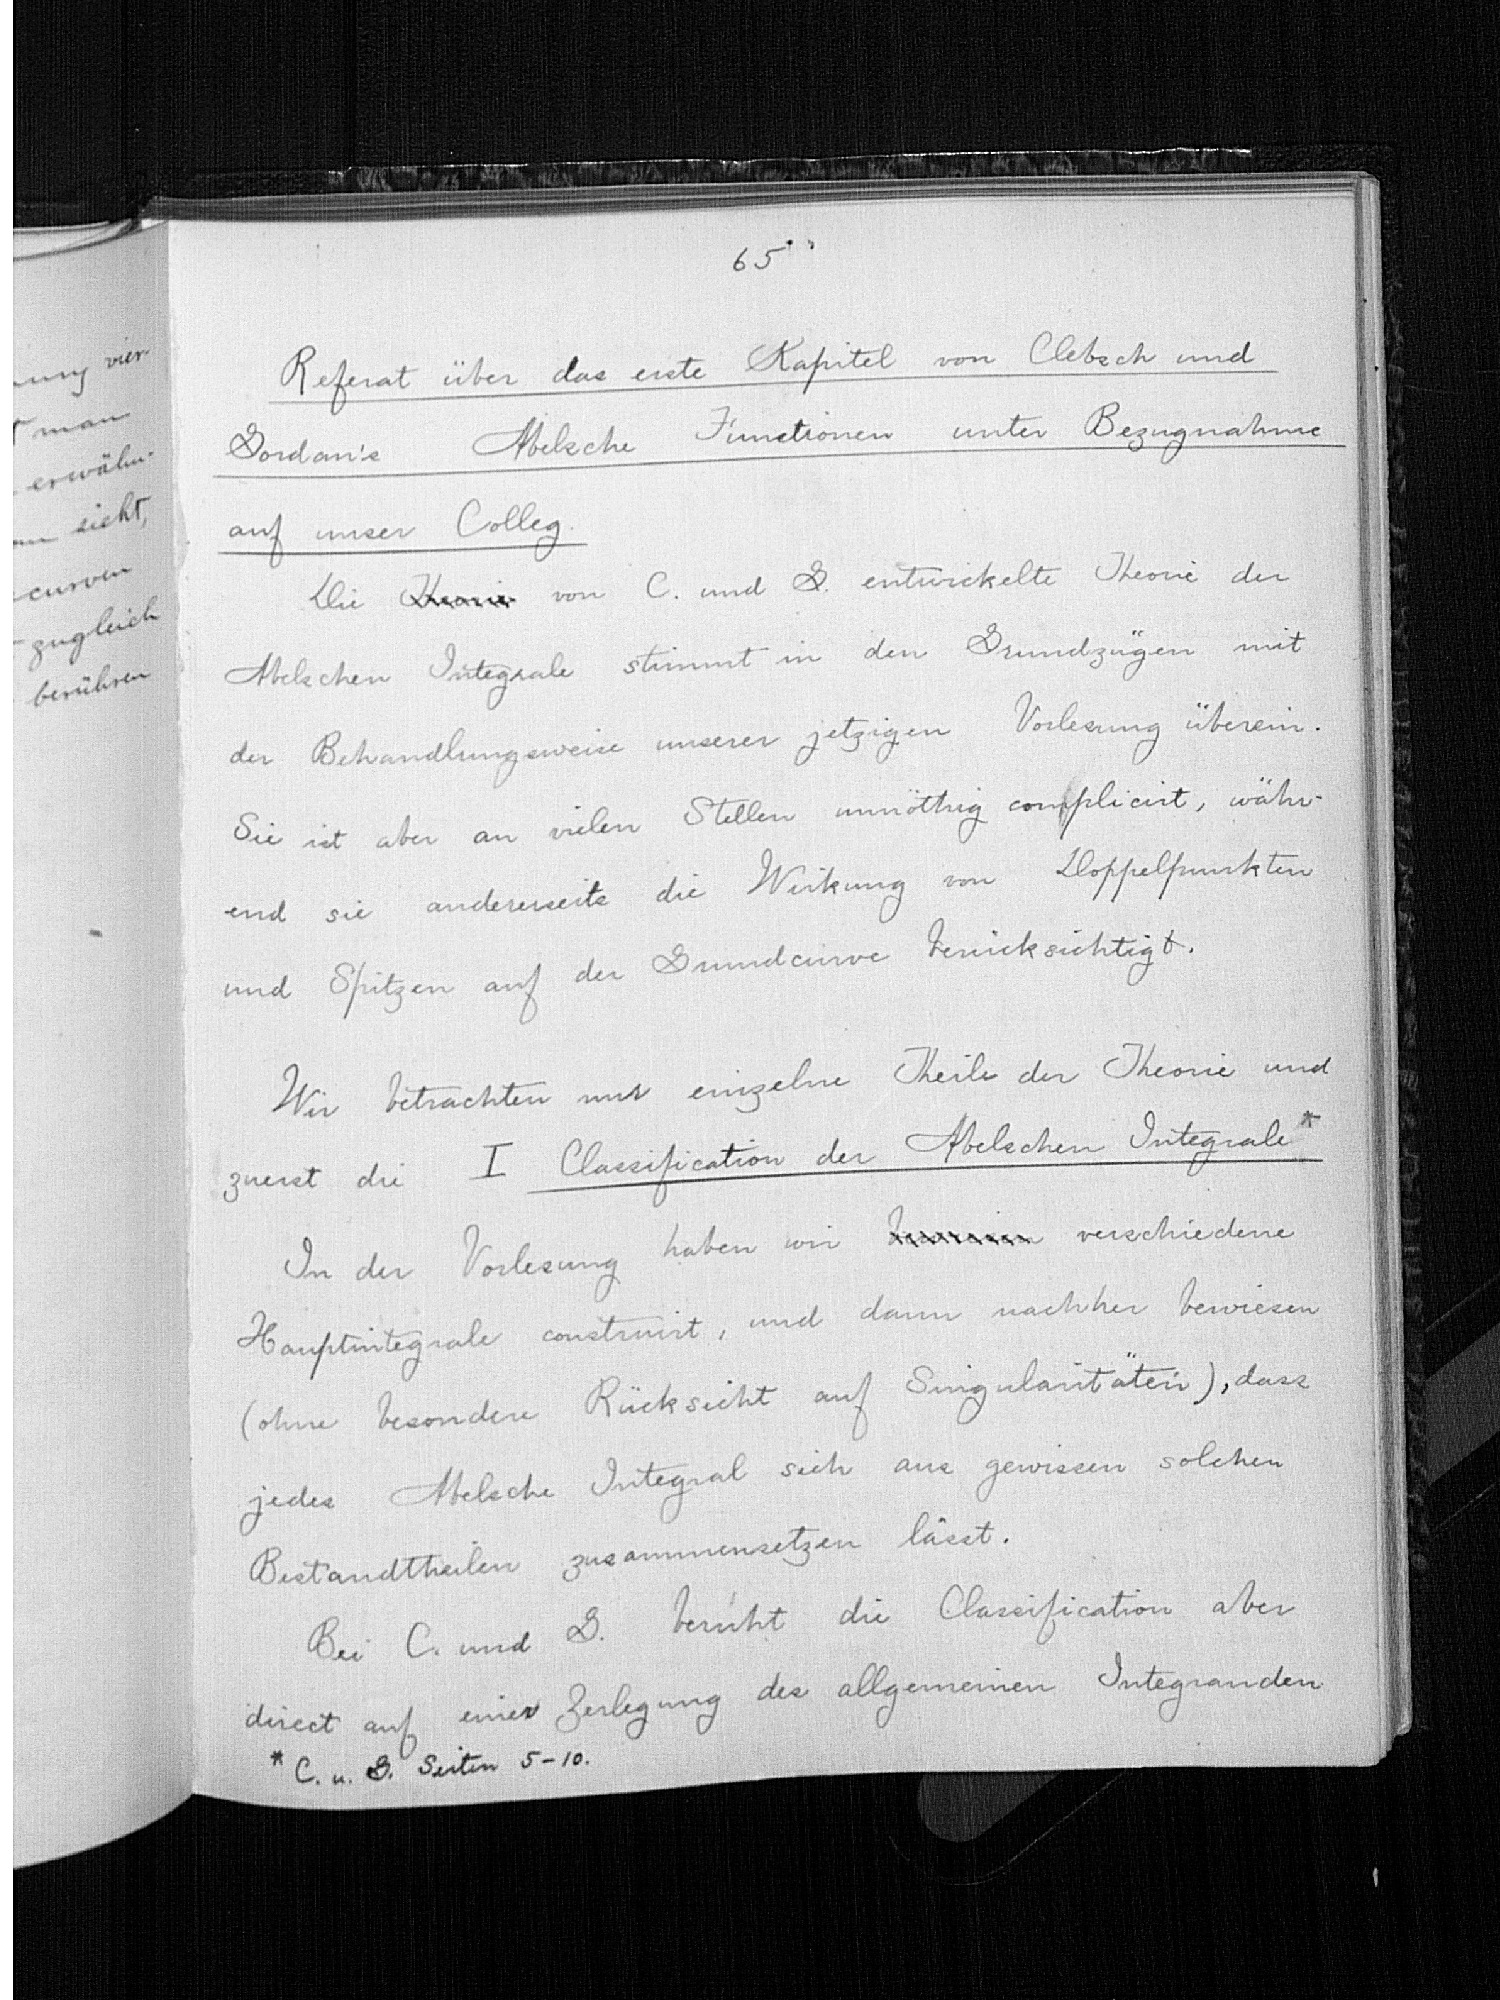 ung vier-
t man
erwähn-
an sieht,
-curven
zugleich
berühren
65
Referat über das erste Kapitel von Clebsch und
Gordan's Abelsche Functionen unter Bezugnahme
auf unser Colleg.
Die Theorie von C. und G. entwickelte Theorie der
Abelschen Integrale stimmt in den Grundzügen mit
der Behandlungsweise unserer jetzigen Vorlesung überein.
Sie ist aber an vielen Stellen unnöthig complicirt, währ-
end sie andererseits die Wirkung von Doppelpunkten
und Spitzen auf der Grundcurve berücksichtigt.
Wir betrachten nur einzelne Theile der Theorie und
zuerst die I Classification der Abelschen Integrale*
In der Vorlesung haben wir verschiedene
Hauptintegrale construirt, und dann nachher bewiesen
(ohne besondere Rücksicht auf Singularitäten), dass
jedes Abelsche Integral sich aus gewissen solchen
Bestandtheilen zusammensetzen lässt.
Bei C. und G. beruht die Classification aber
direct auf einer Zerlegung des allgemeinen Integranden
* C. u. G. Seiten 5-10.